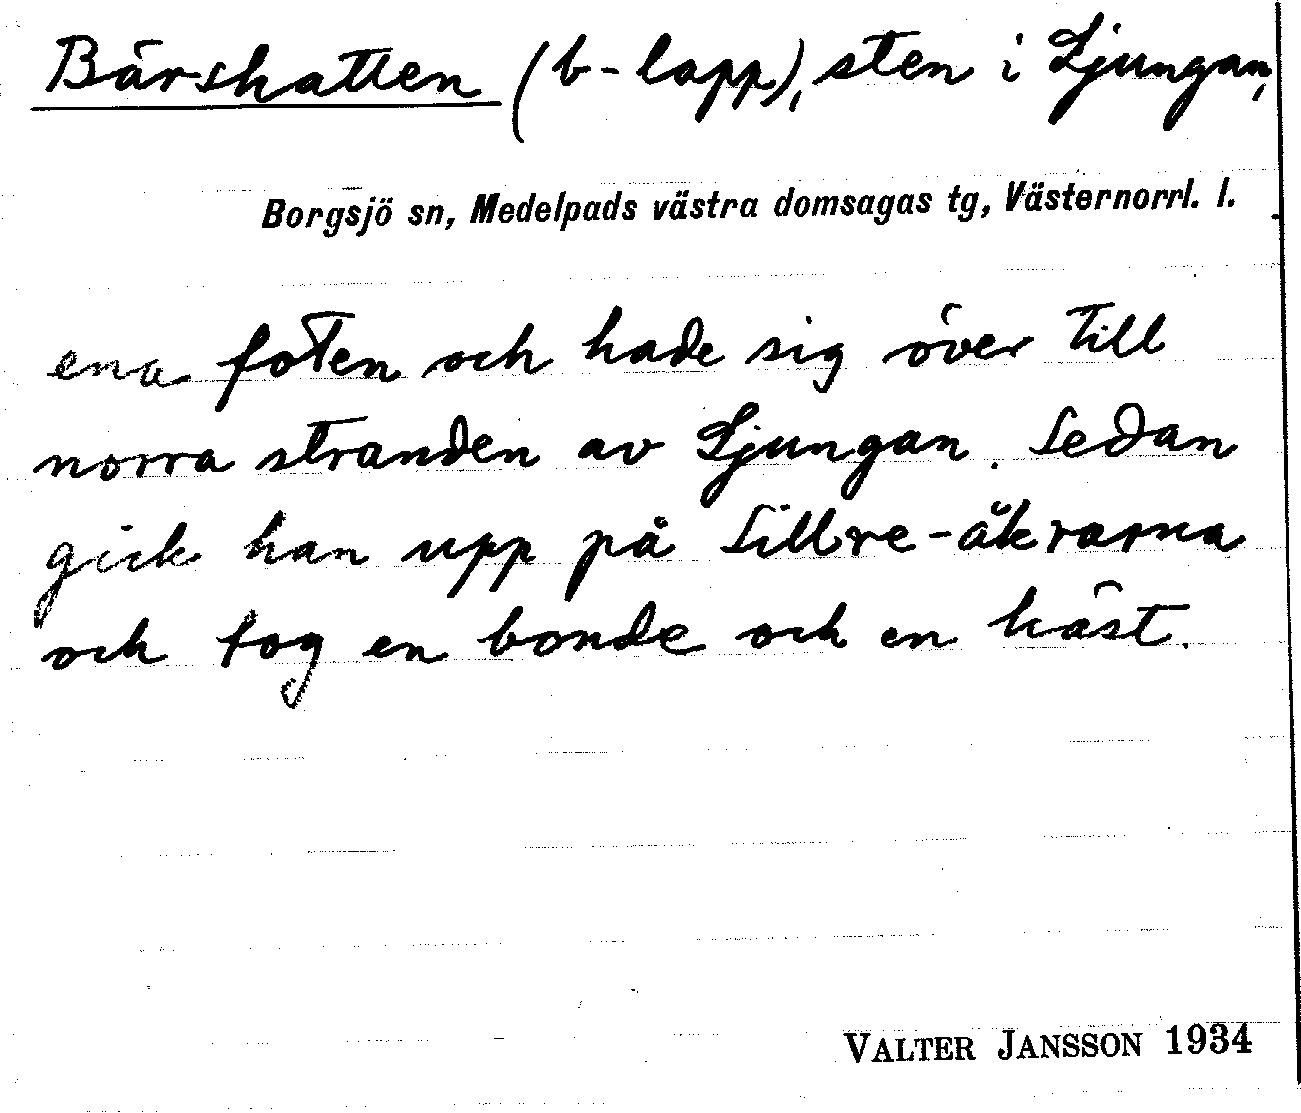 Bärskatten (b-lapp), sten i Ljungan,
Borgsjö sn, Medelpads västra domsagas tg, Västernorrl. l.
ena foten och hade sig över till
norra stranden av Ljungan. Sedan
gick han upp på Sillre-åkrarna
och tog en bonde och en häst.
VALTER JANSSON 1934